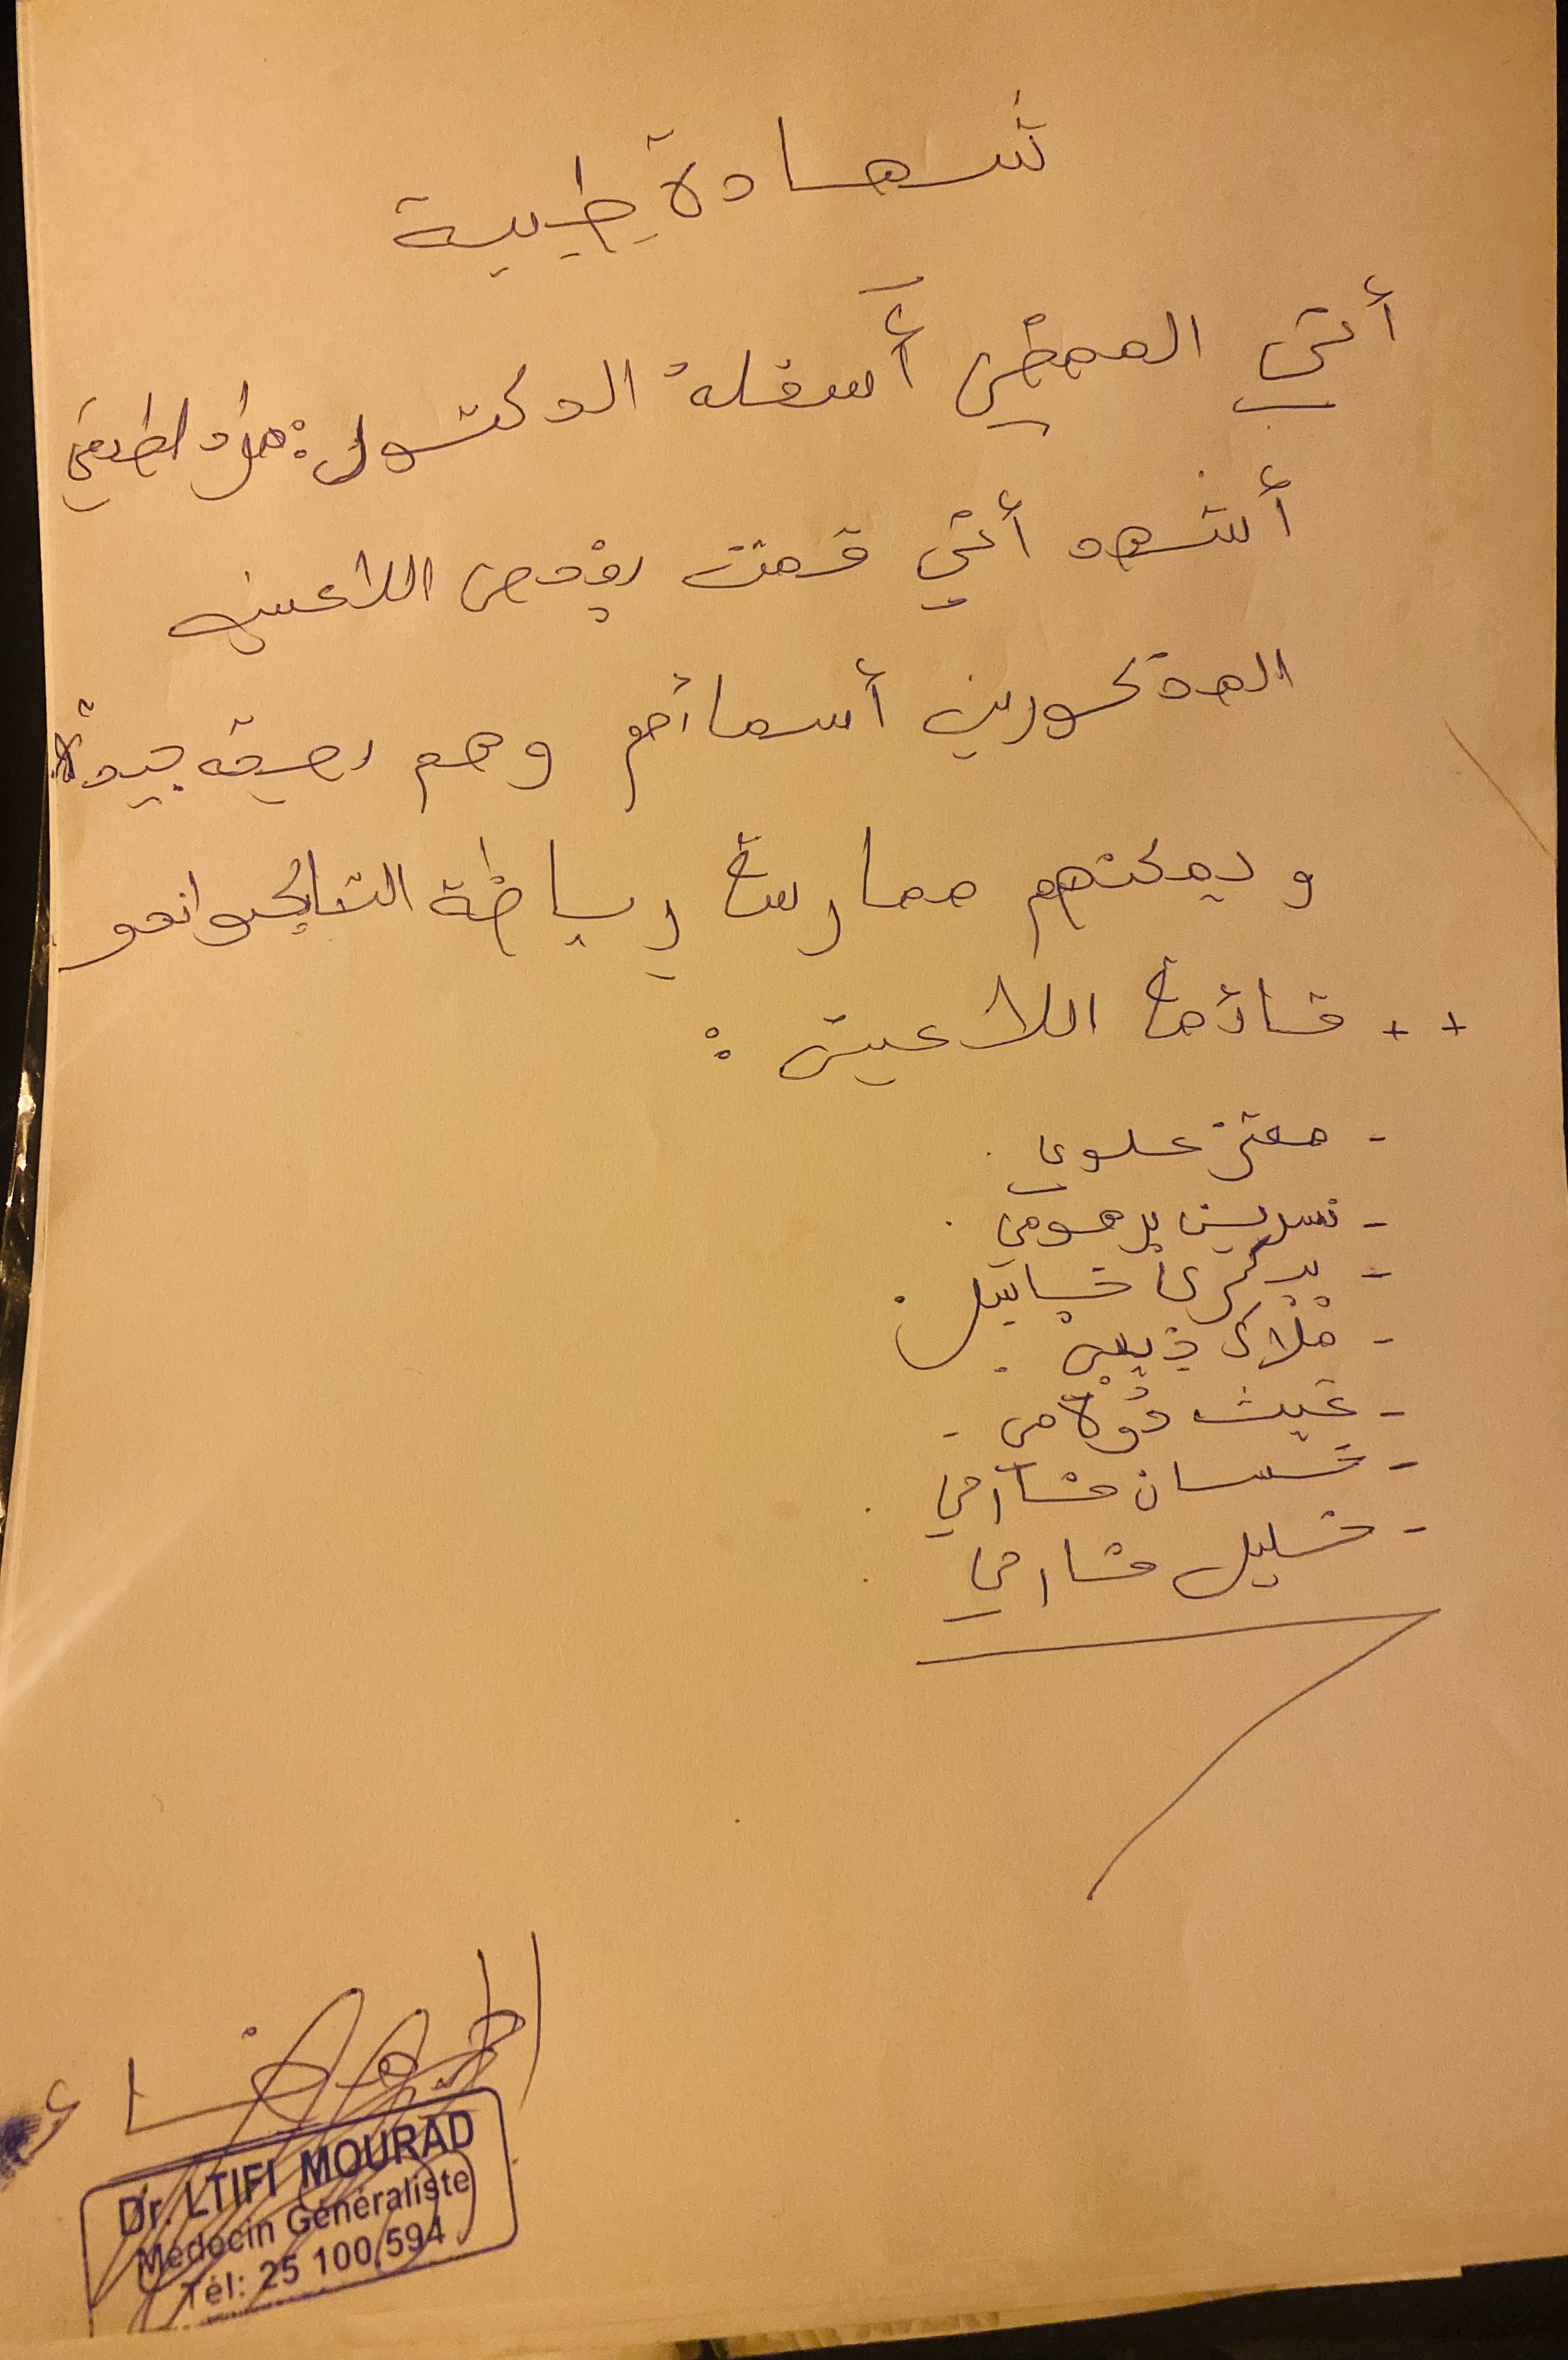 شهادة طبية
أنّي الممضي أسفله الدكتور: مراد لطيفي
أشهد أنّي قمت بفحص اللاعبين
المذكورين أسمائهم وهم بصحة جيدة
ويمكنهم ممارسة رياضة التايكواندو
++ قائمة اللاعبين :
- معتز علوي .
- نسرين برهومي .
- يسرى
- ملاك ذيبي .
- غيث
- غسان مشارقي .
- خليل مشارقي .
الإمضاء
Dr. LTIFI MOURAD
Médecin Généraliste
Tél: 25 100 594